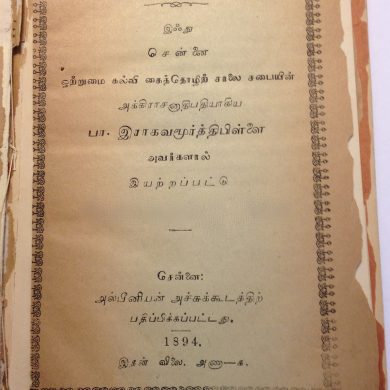 இஃது
சென்னை
ஒற்றுமை கல்வி கைத்தொழிற் சாலை சபையின்
அக்கிராசனாதிபதியாகிய
பா. இராகவமூர்த்திபிள்ளை
அவர்களால்
இயற்றப்பட்டு
சென்னை:
அல்பீனியன் அச்சுக்கூடத்திற்
பதிப்பிக்கப்பட்டது.
1894.
இதன் விலை, அணா-௧.